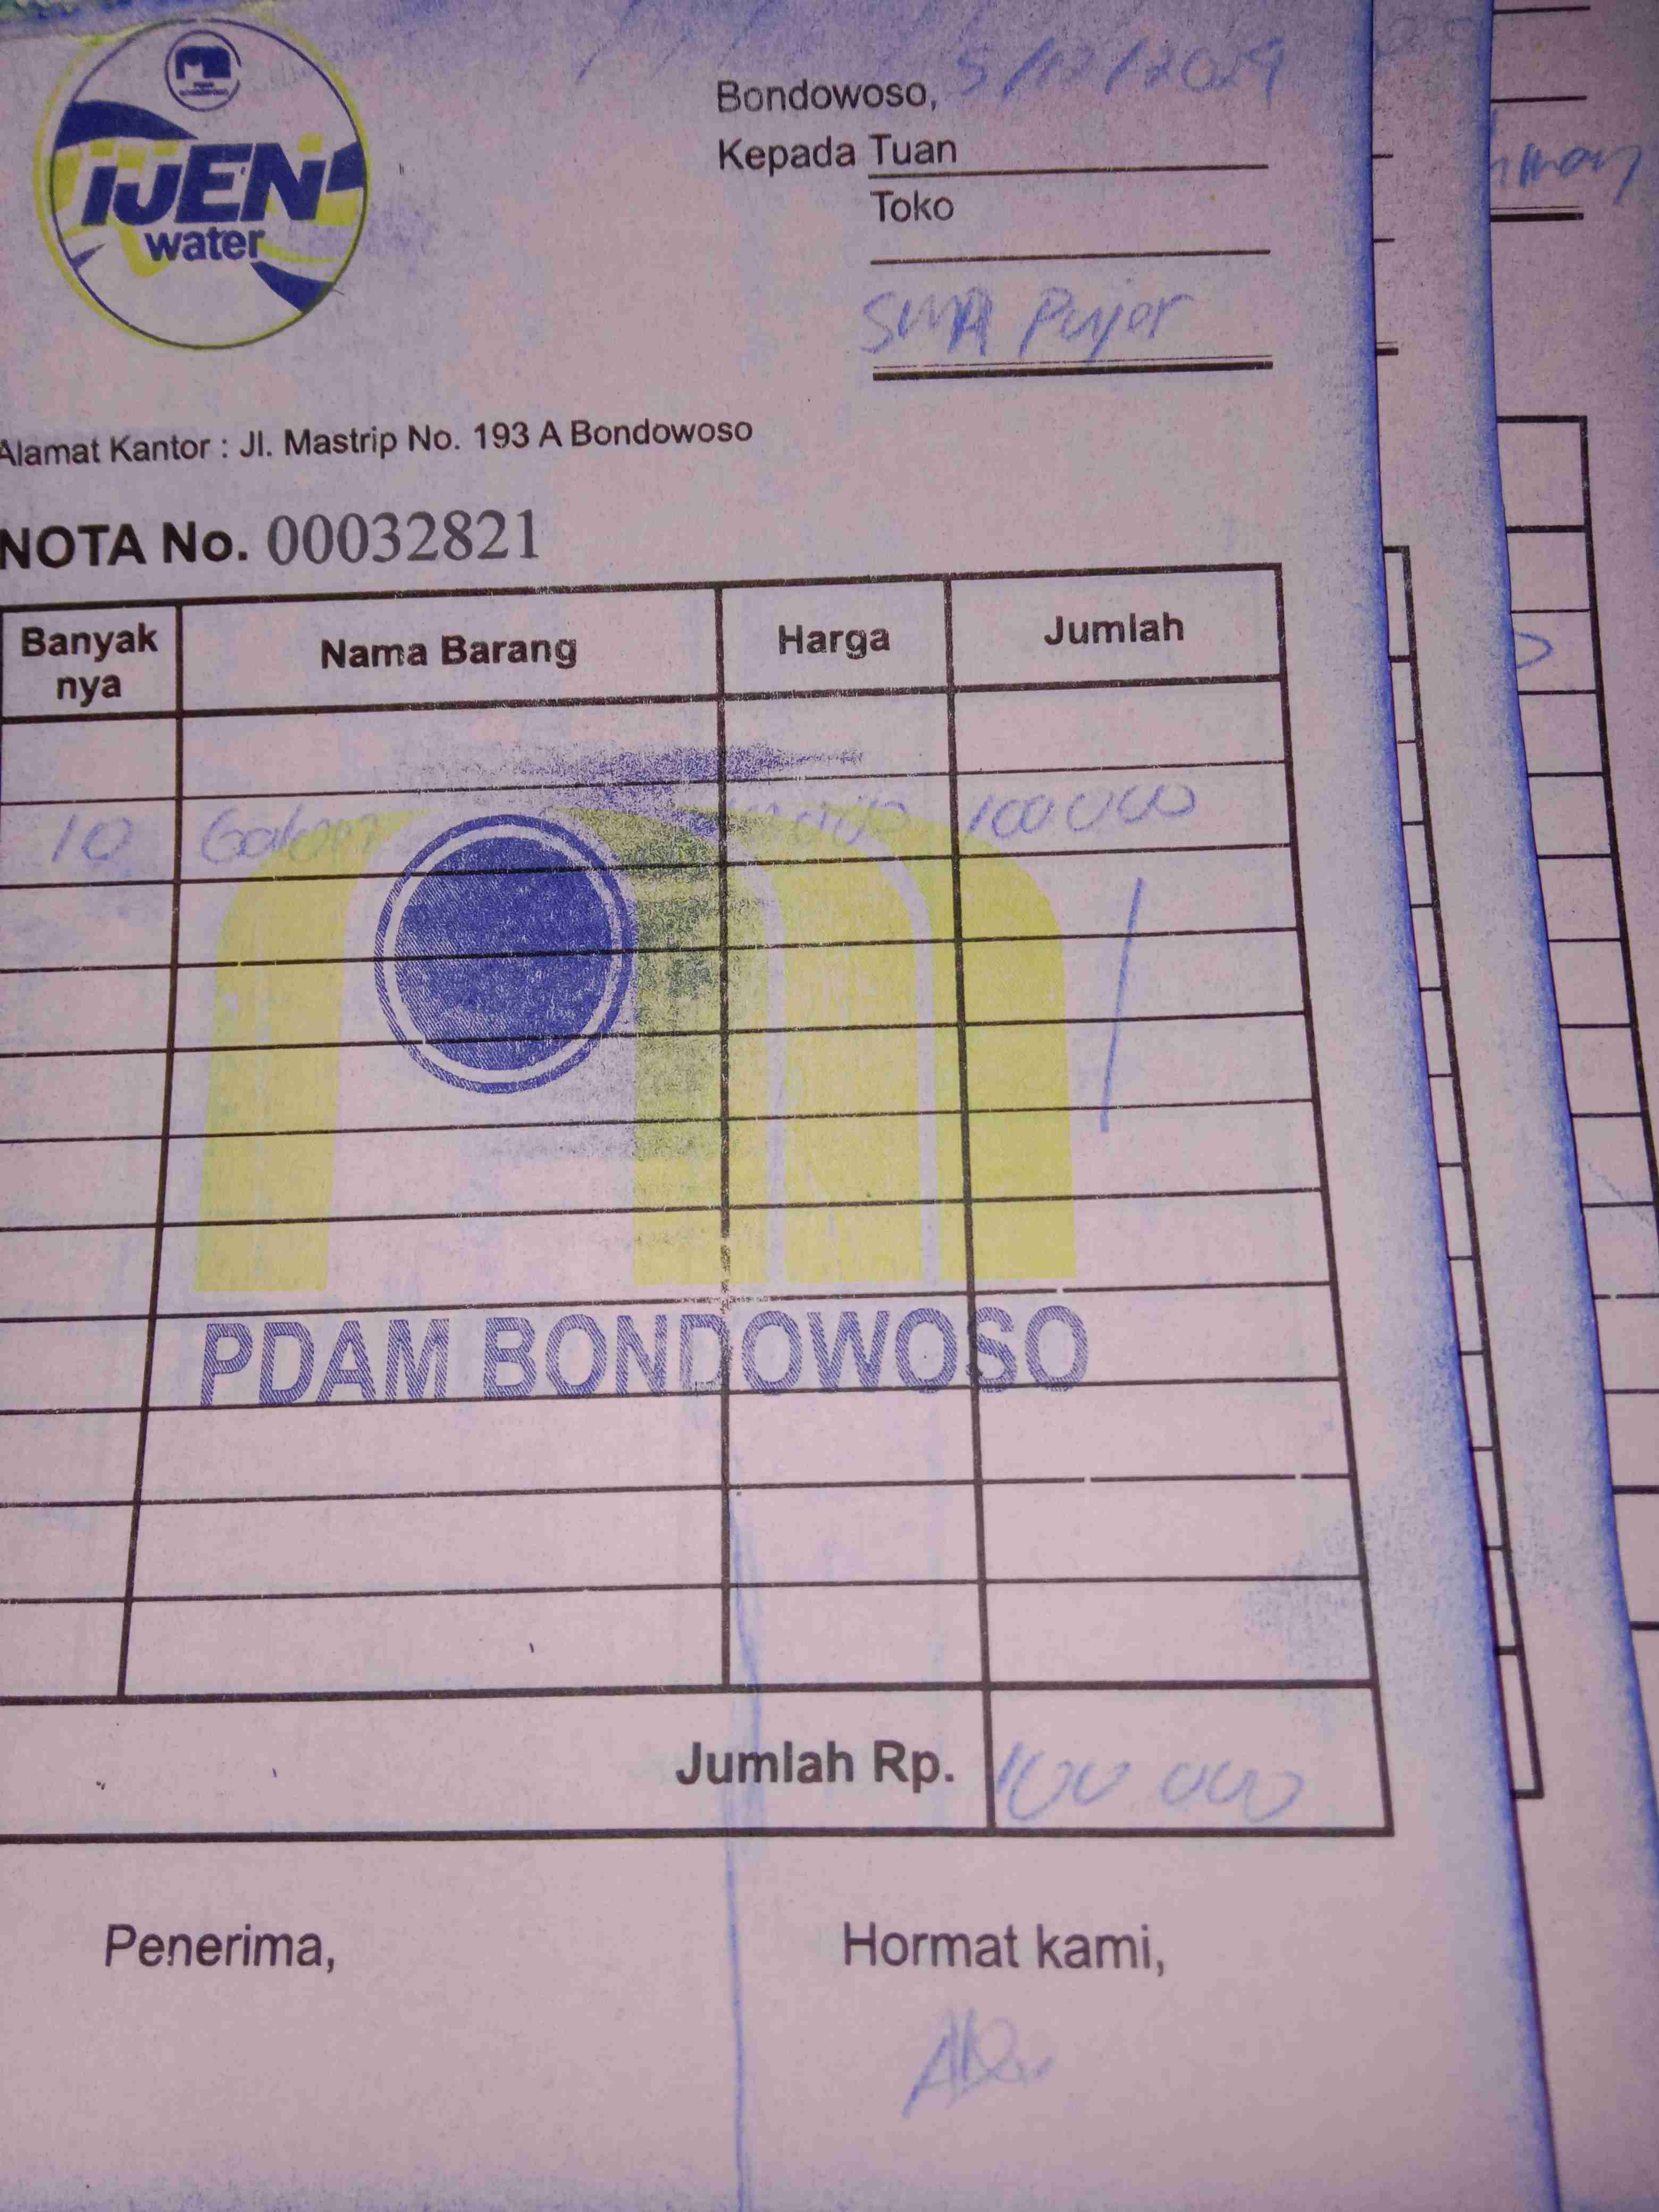 IJEN
water
Bondowoso, 5/12/2024
Kepada Tuan
Toko
SMA Pujer
Alamat Kantor : Jl. Mastrip No. 193 A Bondowoso
NOTA No. 00032821
Banyak nya Nama Barang Harga Jumlah
10 Galon 100000
PDAM BONDOWOSO
Jumlah Rp. 100 000
Penerima, Hormat kami,